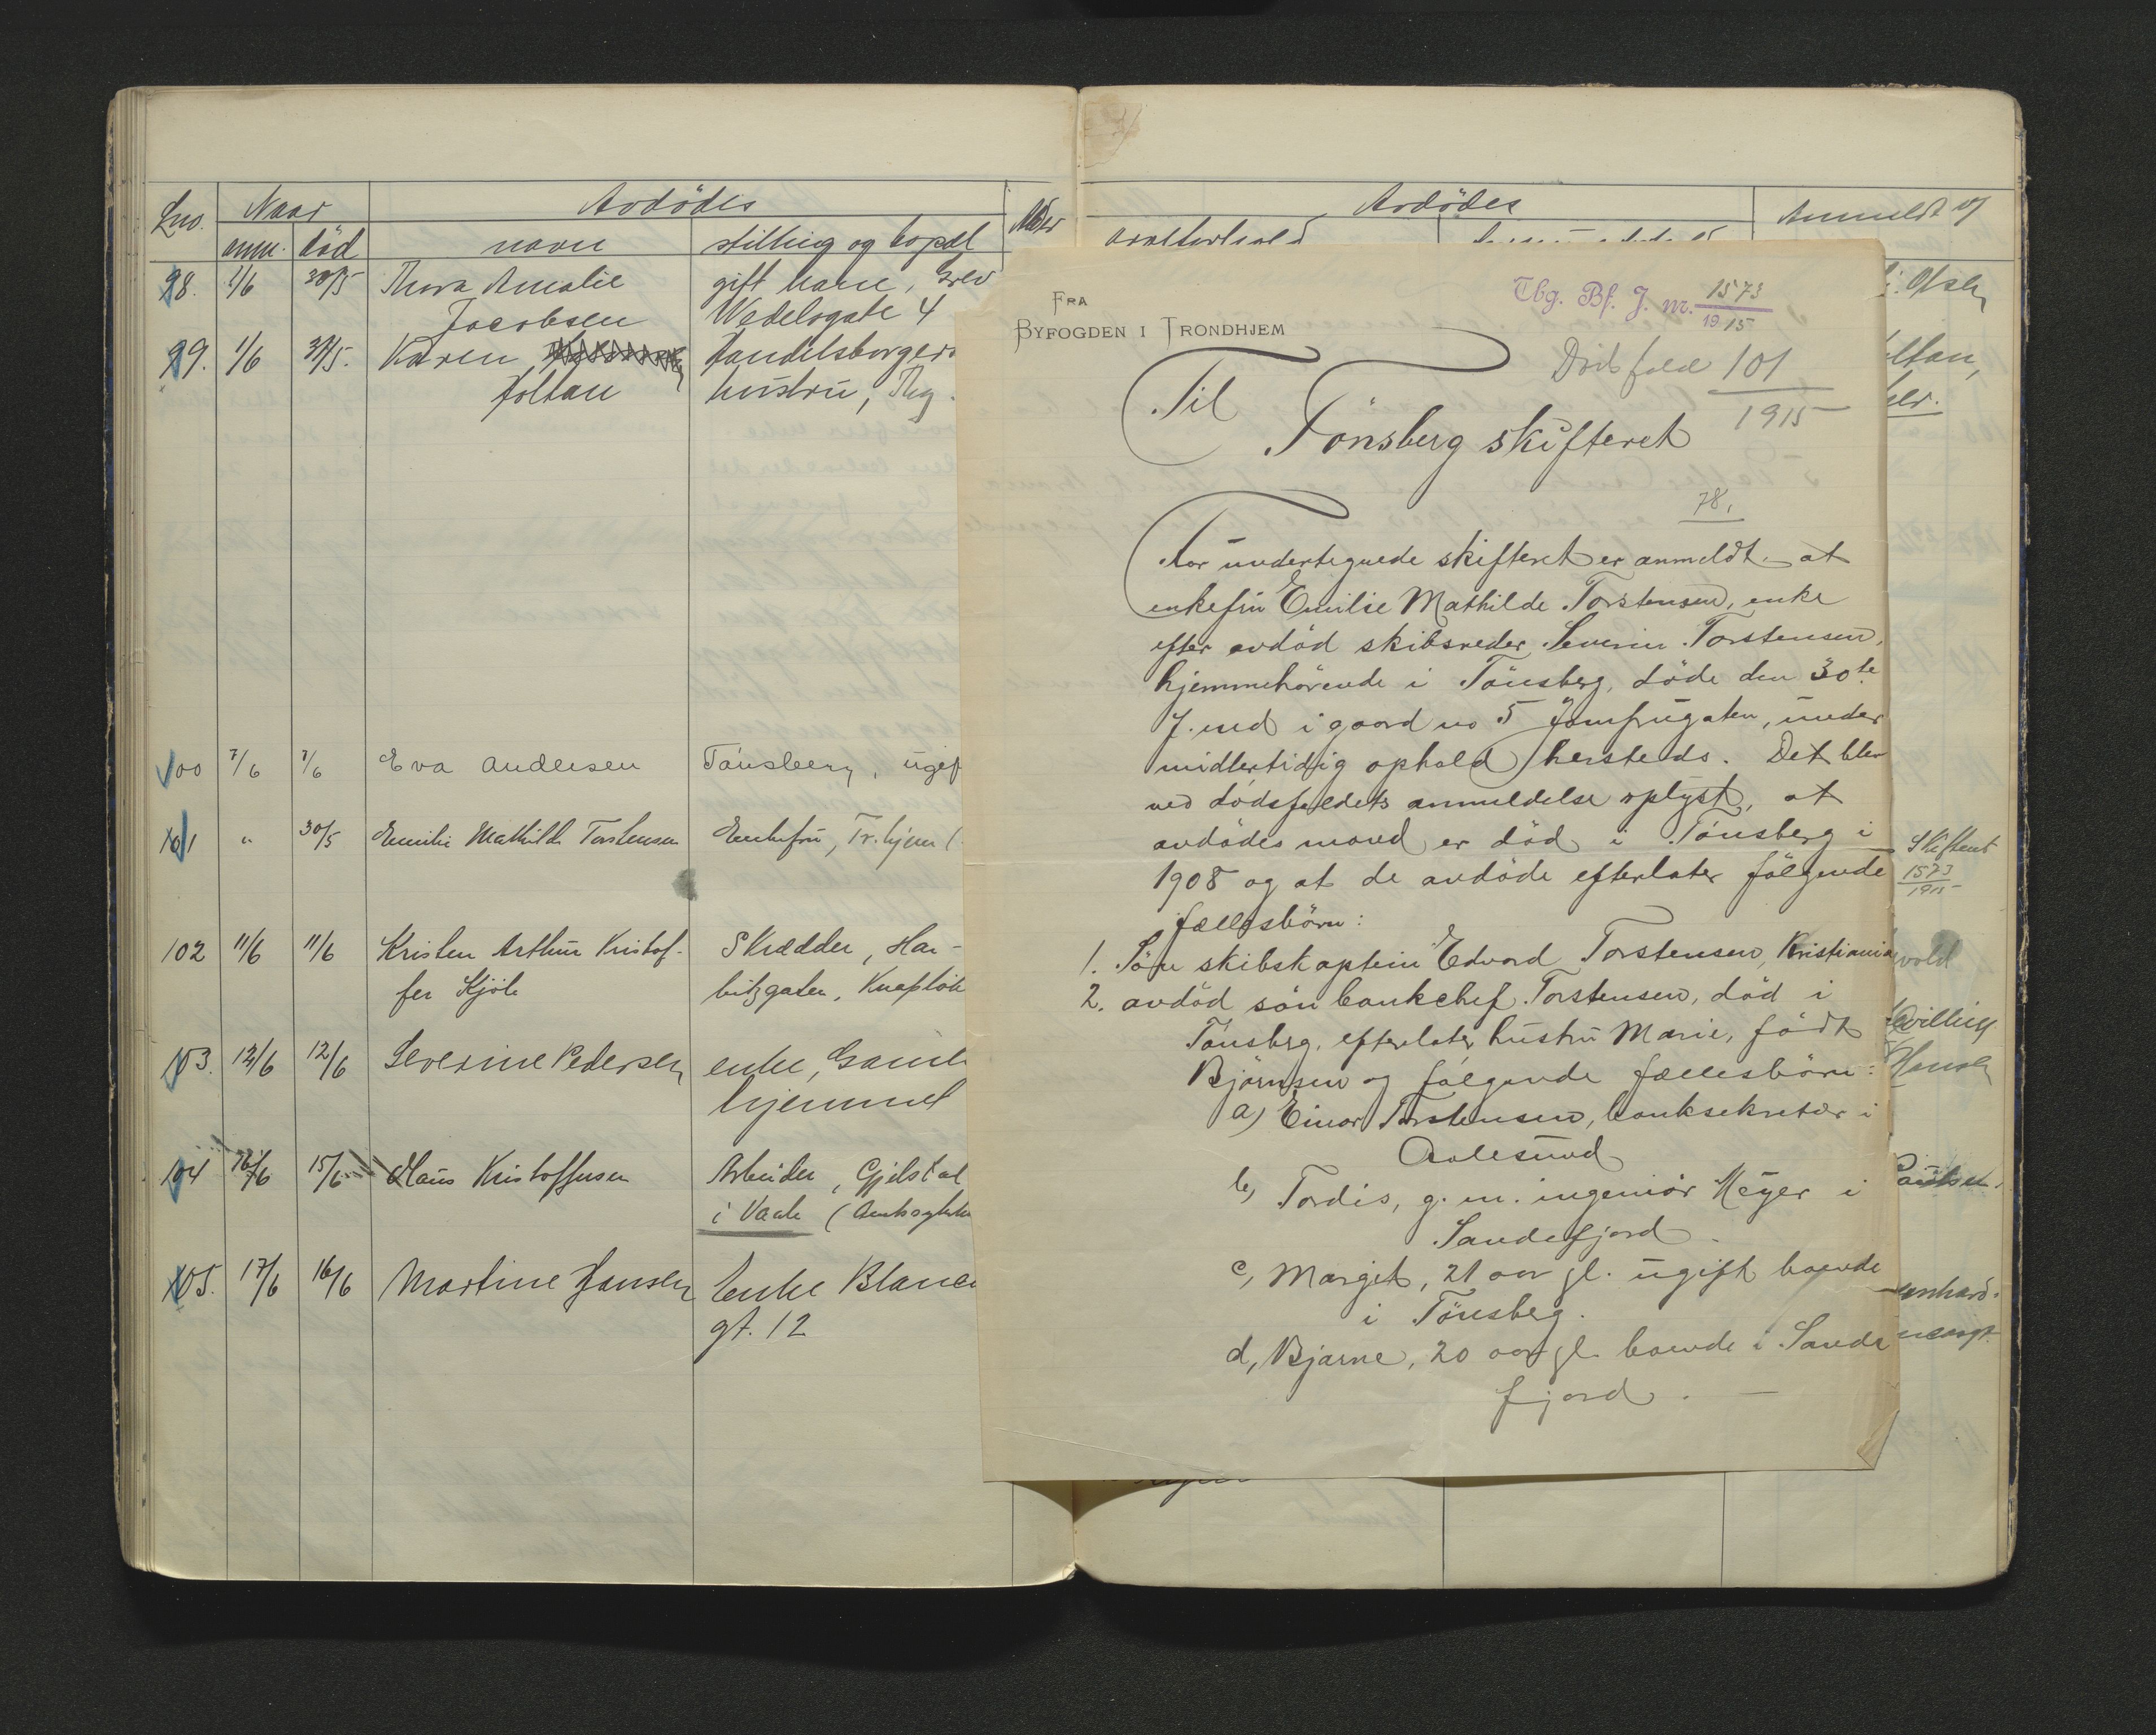 Lno.
Naar
Avdödes
Alder
anm.
död
navn
stilling og bopæl
98.
1/6
30/5
Thora Amalie
gift kone, Grev
Jacobsen
Wedelsgate 4
99.
1/6
31/5.
Karen
handelsborgers
Foltan
hustru, Tbg.
100
7/6
7/6
Eva Andersen
Tönsberg, ugif
101
"
30/5
Emilie Mathilde Torstensen
Enkefru, Tr.hjem (
102
11/6
11/6
Kristen Arthur Kristof-
Skrædder, Har-
fer Kjöle
bitzgaten,
103.
12/6
12/6
Severine Pedersen
enke, Gamle
hjemmet
104
16/6
15/6
Hans Kristoffersen
Arbeider,
i Vaale (Amtssykeh
105.
17/6
16/6
Martine Hansen
Enke
gt. 12
Avdödes
Anmeldt af
FRA
BYFOGDEN I TRONDHJEM
Tbg. Bf. J. nr. 1573
1915
Dödsfald 101
1915
Til
Tönsberg skifteret
78.
For undertegnede skifteret er anmeldt at
enkefru Emilie Mathilde Torstensen, enke
efter avdöd skibsreder Severin Torstensen,
hjemmehörende i Tönsberg, döde den 30te
f. md i gaard no 5 Jomfrugaten, under
midlertidig ophold hersteds. Det blev
ved dödsfaldets anmeldelse oplyst, at
avdödes mand er död i Tönsberg i
1908 og at de avdöde efterlater fölgende
fællesbörn:
1. Sön skibskaptein Edvard Torstensen, Kristiania
2. avdöd sön bankchef Torstensen, död i
Tönsbrg, efterlater hustru Marie, födt
Björnsen og fölgende fællesbörn:
a) Einar Torstensen, banksekretær i
Aalesund
b) Tordis, g. m. ingeniör Meyer i
Sandefjord.
c, Margit, 21 aar gl. ugift boende
i Tönsberg.
d, Bjarne, 20 aar gl. boende i Sande
fjord. —
Skifteret
1573
1915